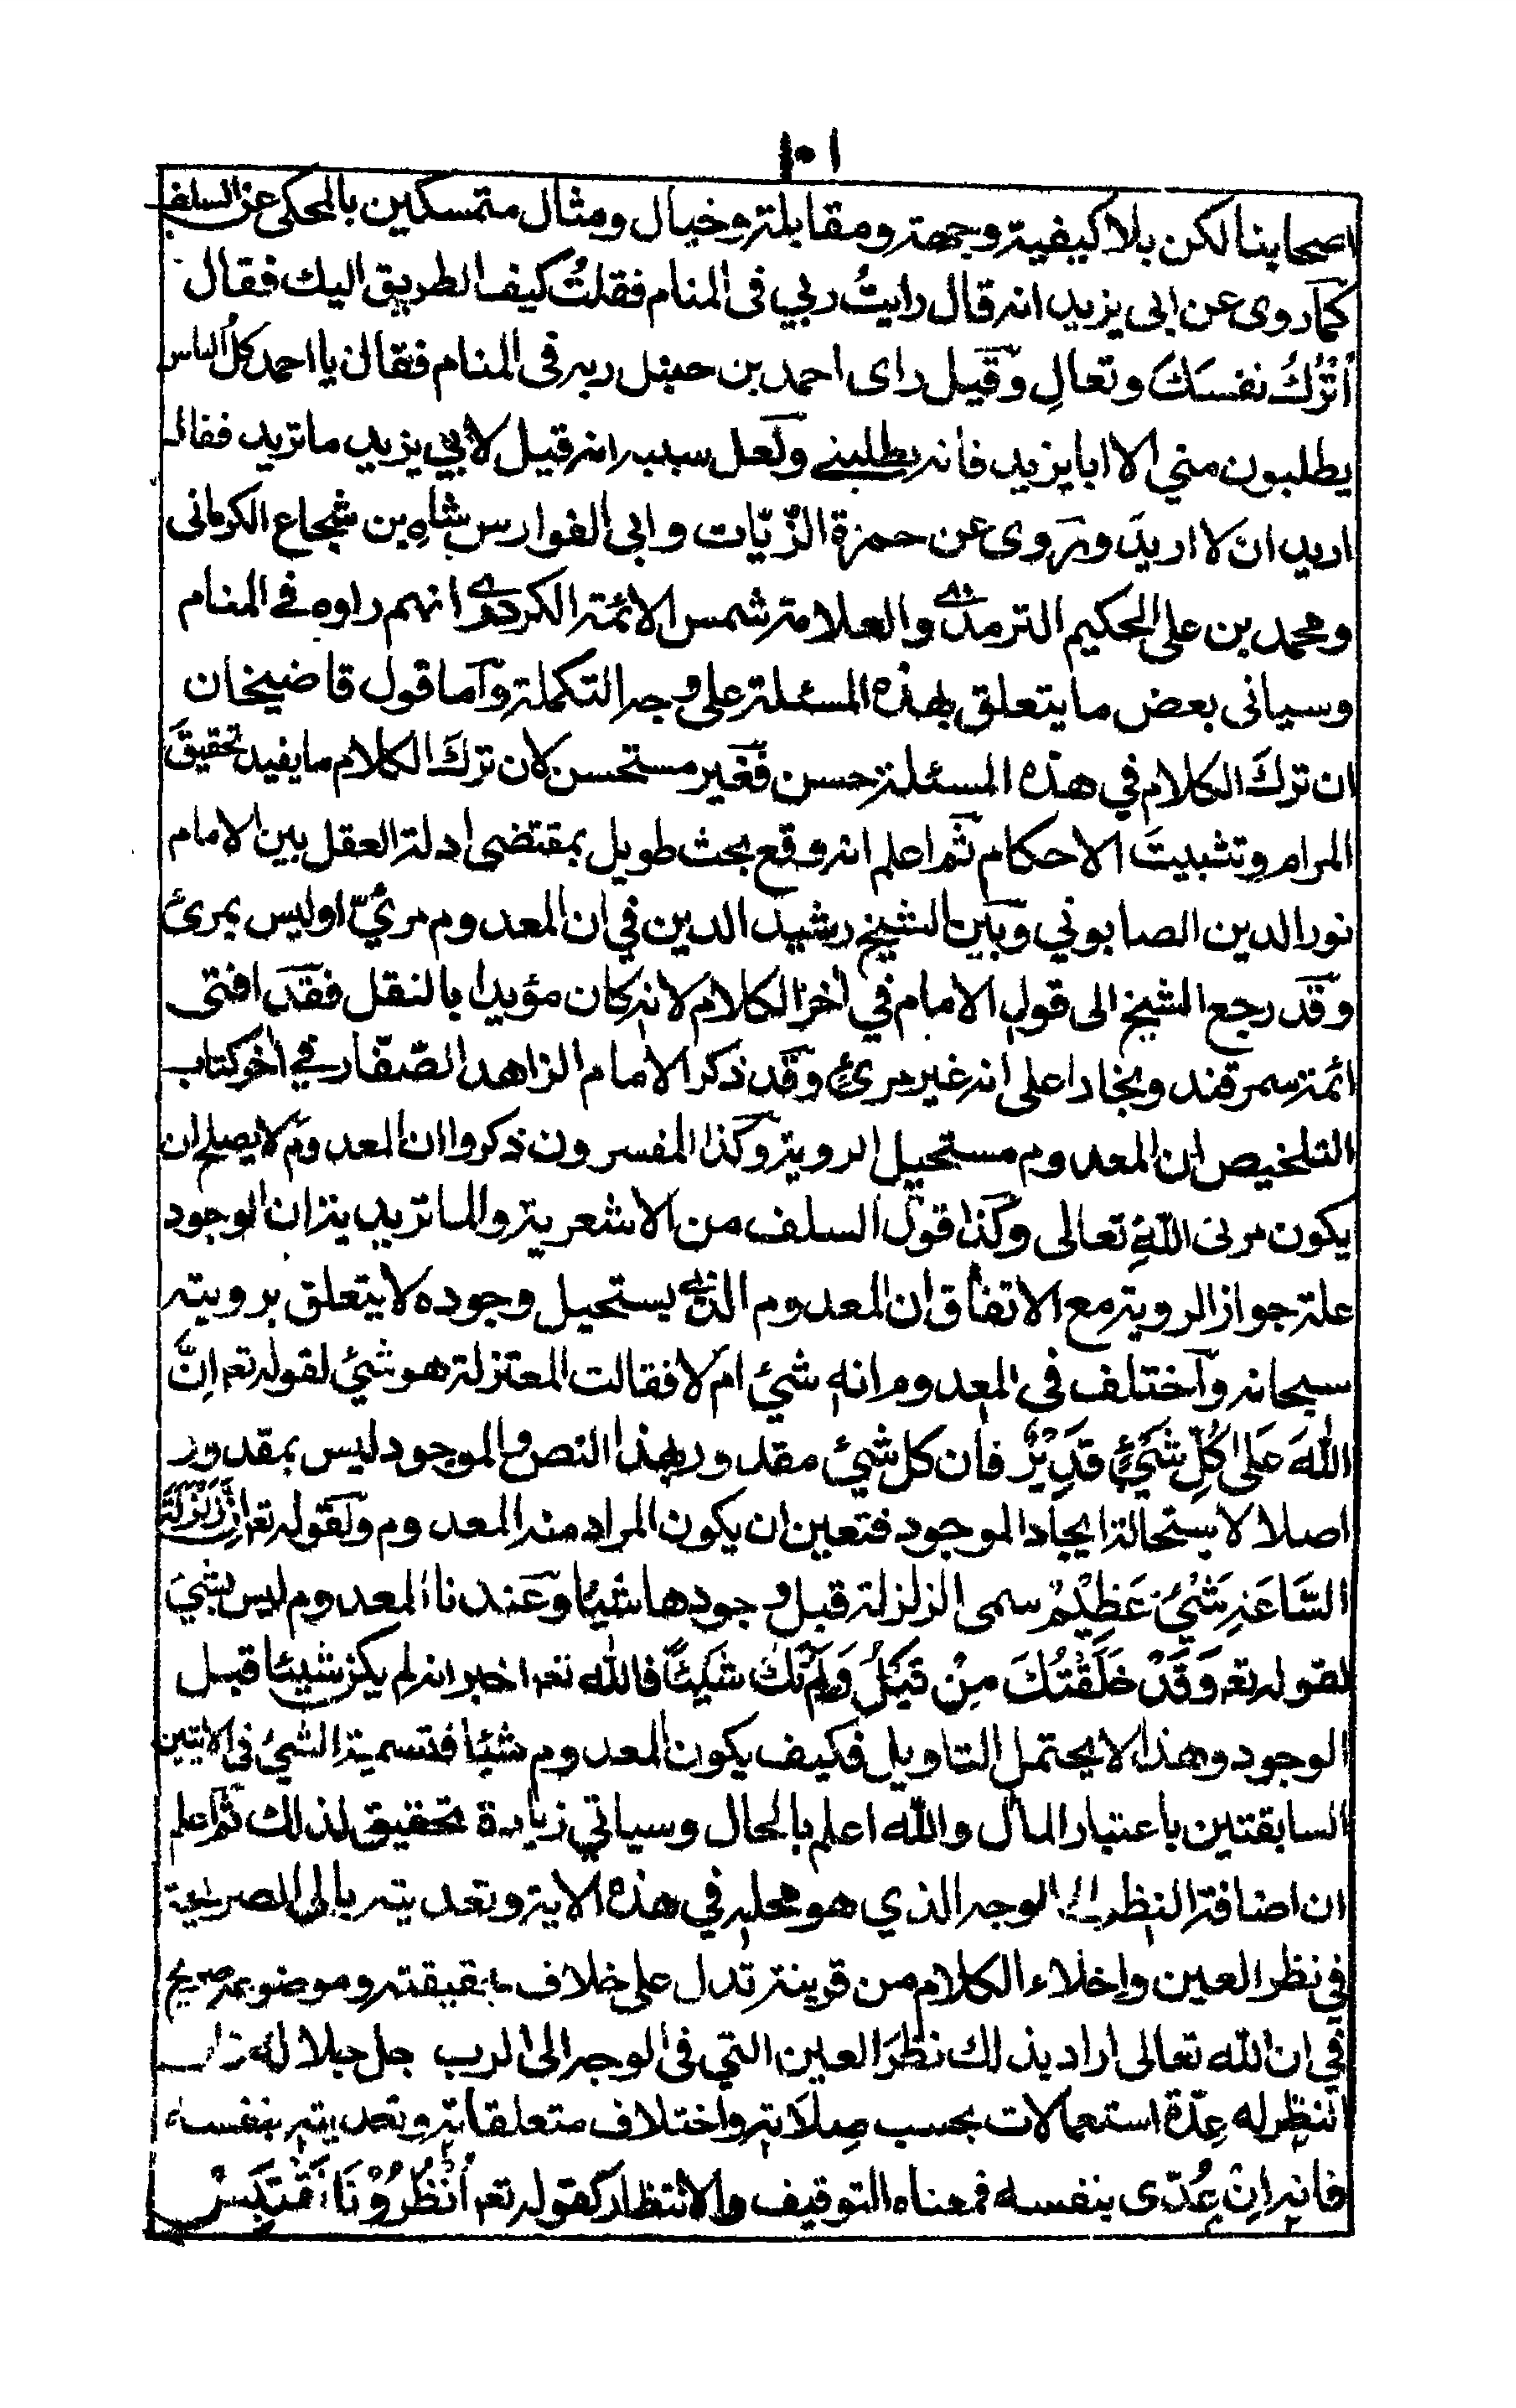 ١٠١
اصحابنا لكن بلا كيفية وجهة ومقابلة وخيال ومثال متمسكين بالمحكى عن السلف
كما روى عن ابى يزيد انه قال رايتُ ربي فى المنام فقلتُ كيف الطريق اليك فقال
اُتْرُكْ نفسَكَ وتعالِ وقيل راى احمد بن حنبل ربه فى المنام فقال يا احمد كلُ الناس
يطلبون مني الا ابا يزيد فانه يطلبنے ولعل سببه انه قيل لابي يزيد ما تريد فقال
اريد ان لا اريدَ وروى عن حمزة الزّيّات وابى الفوارس شاه بن شجاع الكرمانى
ومحمد بن على الحكيم الترمذے والعلامة شمس الائمة الكردرے انهم راوه فے المنام
وسياتى بعض ما يتعلق بهذه المسئلة على وجه التكملة واما قول قاضيخان
ان تركَ الكلام في هذه المسئلة حسن فغير مستحسن لان تركَ الكلام ما يفيد تحقيقَ
المرام وتثبيتَ الاحكام ثم اعلم انه وقع بحث طويل بمقتضى ادلة العقل بين الامام
نور الدين الصابوني وبين الشيخ رشيد الدين في ان المعدوم مرئيّ او ليس بمرئ
وقد رجع الشيخ الى قول الامام في اخر الكلام لانه كان مؤيدا بالنقل فقد افتى
ائمة سمرقند وبخارا على انه غير مرئ وقد ذكر الامام الزاهد الصّفّار في اخر كتاب
التلخيص ان المعدوم مستحيل الروية وكذا المفسرون ذكروا ان المعدوم لا يصلح ان
يكون مرئى اللّٰهِ تعالى وكذا قول السلف من الاشعرية والماتريدية ان الوجود
علة جواز الروية مع الاتفاق ان المعدوم الذے يستحيل وجوده لا يتعلق برويته
سبحانه واختلف فى المعدوم انه شئ ام لا فقالت المعتزلة هو شئ لقوله تعه اِنَّ
اللّٰهَ عَلٰى كُلِّ شَيْءٍ قَدِيْرٌ فان كل شئ مقدور بهذا النص والموجود ليس بمقدور
اصلا لاستحالة ايجاد الموجود فتعين ان يكون المراد منه المعدوم ولقوله تعه اِنَّ زَلْزَلَةَ
السَّاعَةِ شَيْءٌ عَظِيْمٌ سمى الزلزلة قبل وجودها شيئا وعندنا المعدوم ليس بشئ
لقوله تعه وَقَدْ خَلَقْتُكَ مِنْ قَبْلُ وَلَمْ تَكُ شَيْئًا فالله تعه اخبر انه لم يكن شيئا قبل
الوجود وهذا لا يحتمل التاويل فكيف يكون المعدوم شيئا فتسمية الشئ فى الايتين
السابقتين باعتبار المآل والله اعلم بالحال وسياتي زيادة تحقيق لذلك ثم اعلم
ان اضافة النظر الى الوجه الذي هو محله في هذه الاية وتعديته بالى الصريحة
في نظر العين واخلاء الكلام من قرينة تدل على خلاف حقيقته وموضوعه صريح
في ان الله تعالى اراد بذلك نظَرَ العين التي فى الوجه الى الرب جل جلاله
النظر له عِدّة استعمالات بحسب صِلاتِه واختلاف متعلقاته وتعديته بنفسه
فانه اِنْ عُدّى بنفسه فمعناه التوقيف والانتظار كقوله تعه اُنْظُرُوْنَا نَقْتَبِسْ